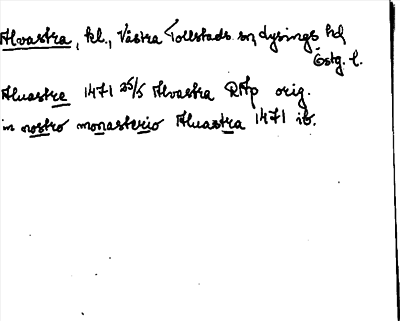 Alvastra, kl., Västra Tollstads sn, Lysings hd
Östg. l.
Aluastre 1471 25/5 Alvastra RAp orig.
in nostro monasterio Aluastra 1471 ib.